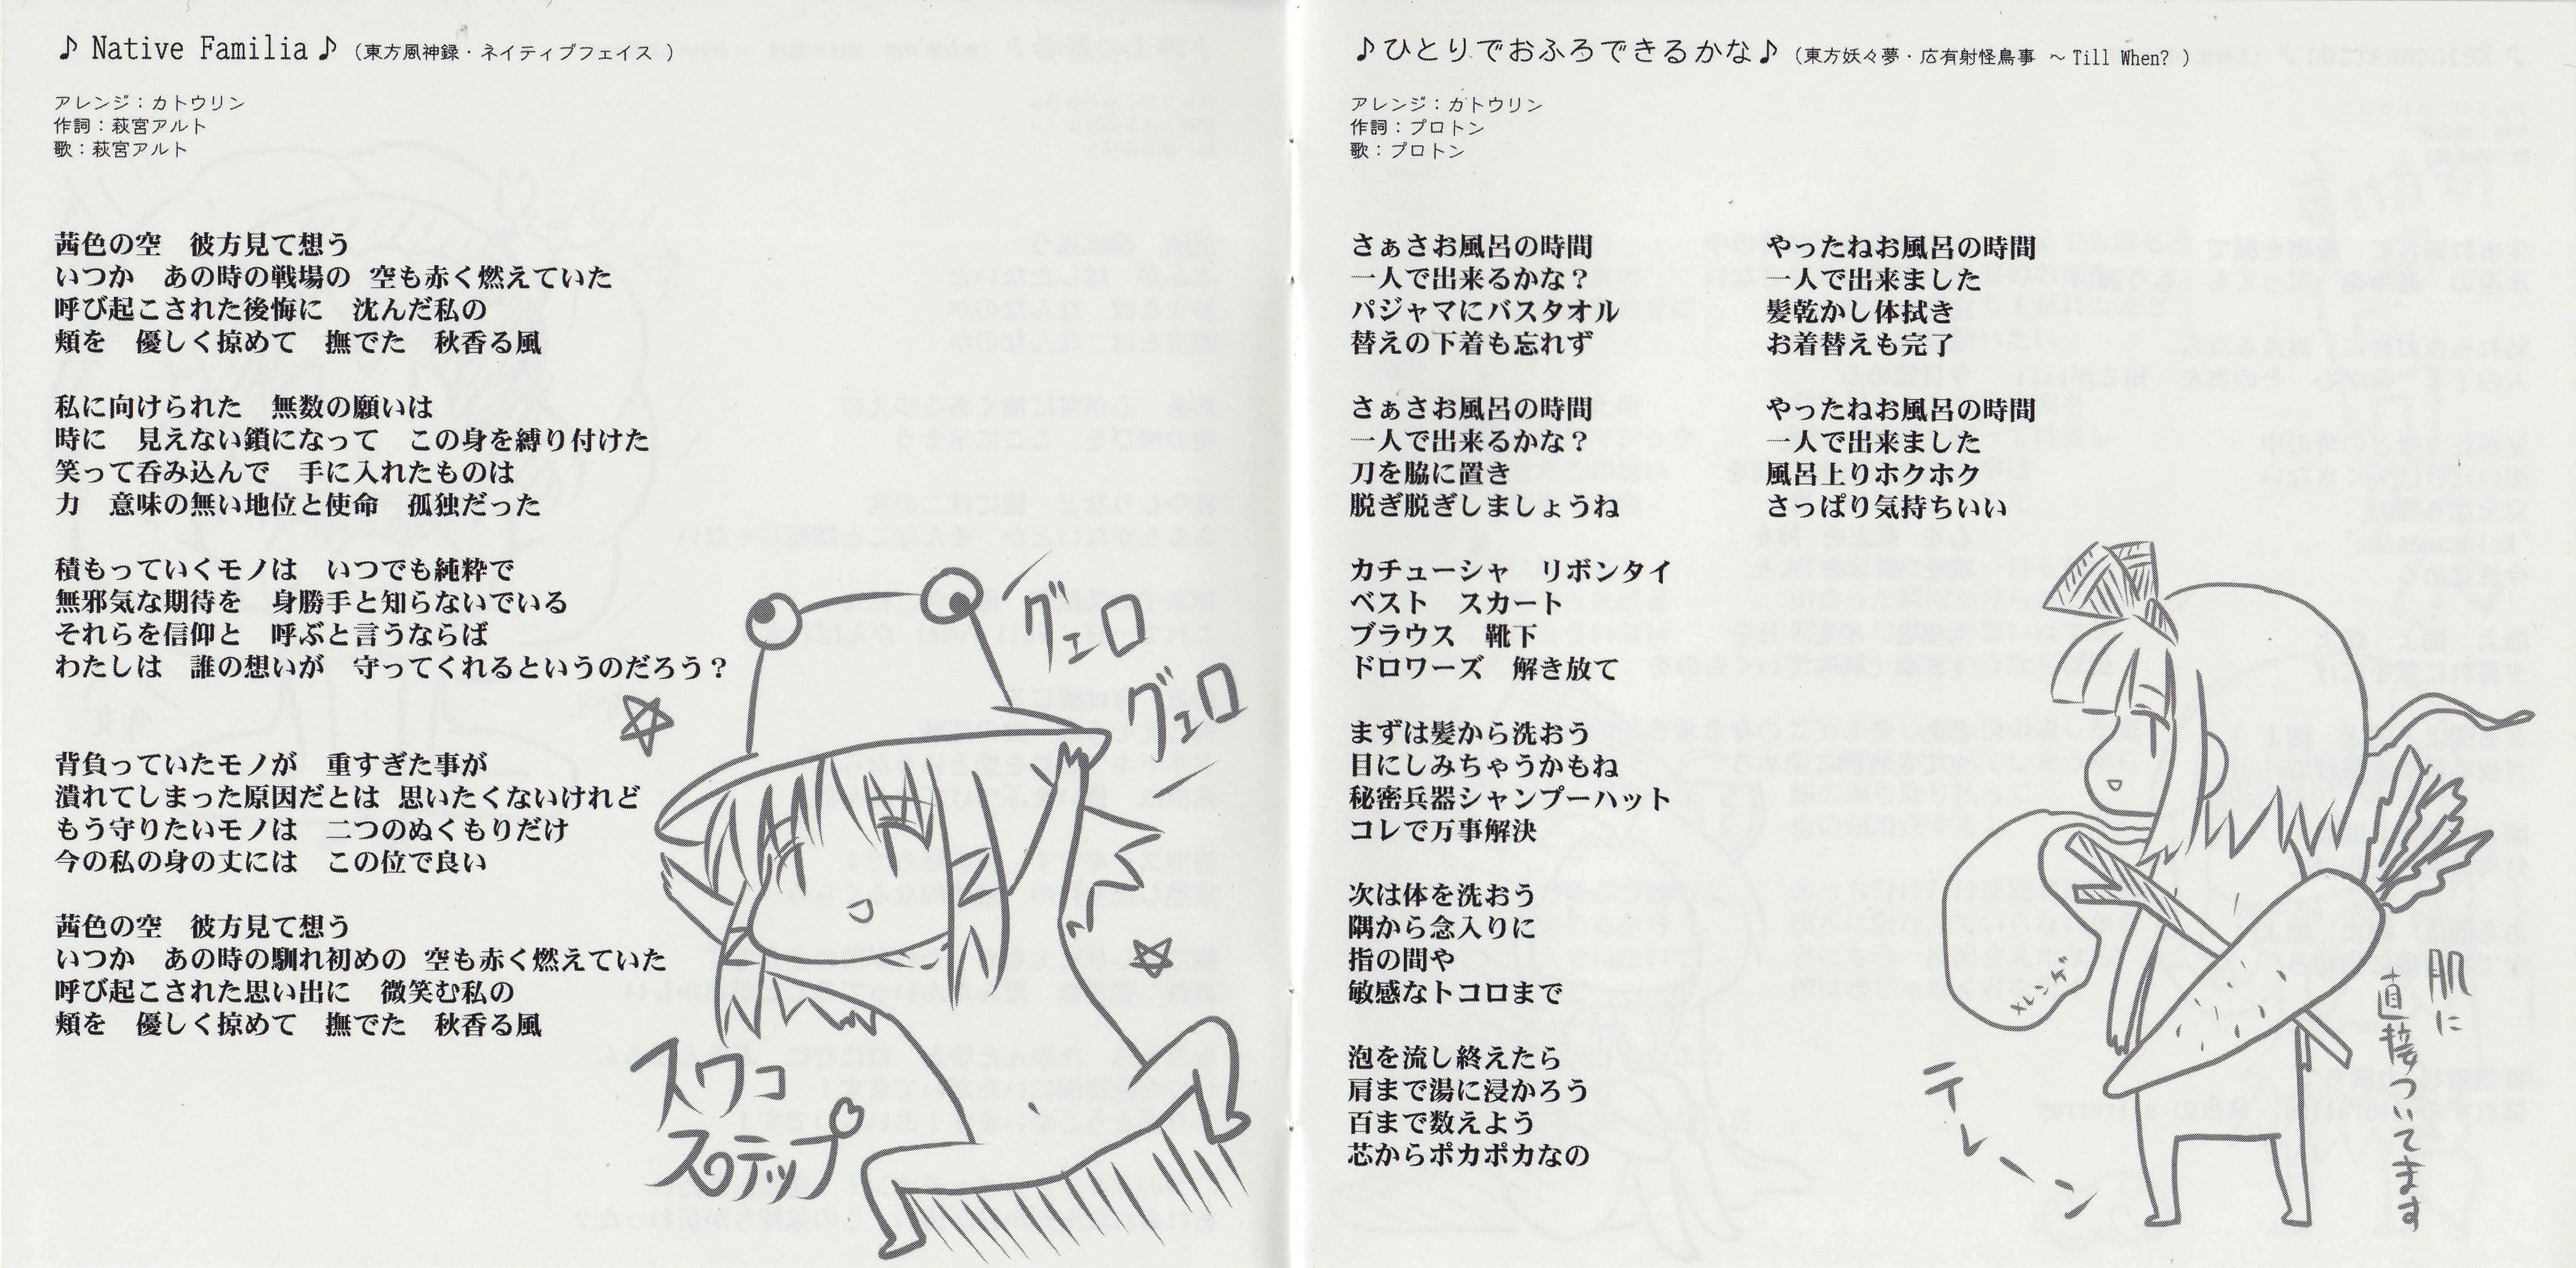 ♪ Native Familia ♪ (東方風神録・ネイティブフェイス )
アレンジ：カトウリン
作詞：萩宮アルト
歌：萩宮アルト
茜色の空　彼方見て想う
いつか　あの時の戦場の 空も赤く燃えていた
呼び起こされた後悔に　沈んだ私の
頬を　優しく掠めて　撫でた　秋香る風
私に向けられた　無数の願いは
時に　見えない鎖になって　この身を縛り付けた
笑って呑み込んで　手に入れたものは
力　意味の無い地位と使命　孤独だった
積もっていくモノは　いつでも純粋で
無邪気な期待を　身勝手と知らないでいる
それらを信仰と　呼ぶと言うならば
わたしは　誰の想いが　守ってくれるというのだろう？
背負っていたモノが　重すぎた事が
潰れてしまった原因だとは 思いたくないけれど
もう守りたいモノは　二つのぬくもりだけ
今の私の身の丈には　この位で良い
茜色の空　彼方見て想う
いつか　あの時の馴れ初めの 空も赤く燃えていた
呼び起こされた思い出に　微笑む私の
頬を　優しく掠めて　撫でた　秋香る風
ゲェロ
ゲェロ
スワコ
ステップ
♪ひとりでおふろできるかな♪ (東方妖々夢・広有射怪鳥事 ～ Till When? )
アレンジ：カトウリン
作詞：プロトン
歌：プロトン
さぁさお風呂の時間
一人で出来るかな？
パジャマにバスタオル
替えの下着も忘れず
さぁさお風呂の時間
一人で出来るかな？
刀を脇に置き
脱ぎ脱ぎしましょうね
カチューシャ　リボンタイ
ベスト　スカート
ブラウス　靴下
ドロワーズ　解き放て
まずは髪から洗おう
目にしみちゃうかもね
秘密兵器シャンプーハット
コレで万事解決
次は体を洗おう
隅から念入りに
指の間や
敏感なトコロまで
泡を流し終えたら
肩まで湯に浸かろう
百まで数えよう
芯からポカポカなの
やったねお風呂の時間
一人で出来ました
髪乾かし体拭き
お着替えも完了
やったねお風呂の時間
一人で出来ました
風呂上りホクホク
さっぱり気持ちいい
肌に
直接ついてます
テレーン